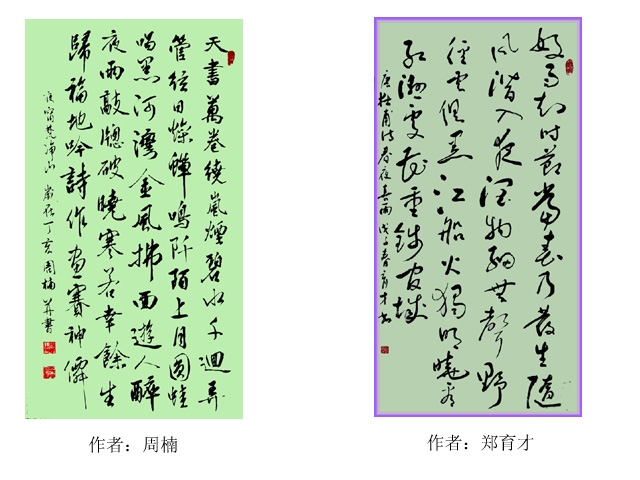 天書萬卷繞嵐煙碧水千迴弄
管絃日燥蟬鳴阡陌上月圓蛙
唱黑河灣金風拂面遊人醉
夜雨敲牕破曉寒若幸餘生
歸福地吟詩作畫賽神僊
梵淨山 歲在丁亥周楠并書
作者：周楠
好雨知時節當春乃發生隨
風潛入夜潤物細無聲野
徑雲俱黑江船火獨明曉看
紅濕處花重錦官城
唐杜甫詩春夜喜雨 戊子春育才書
作者：郑育才